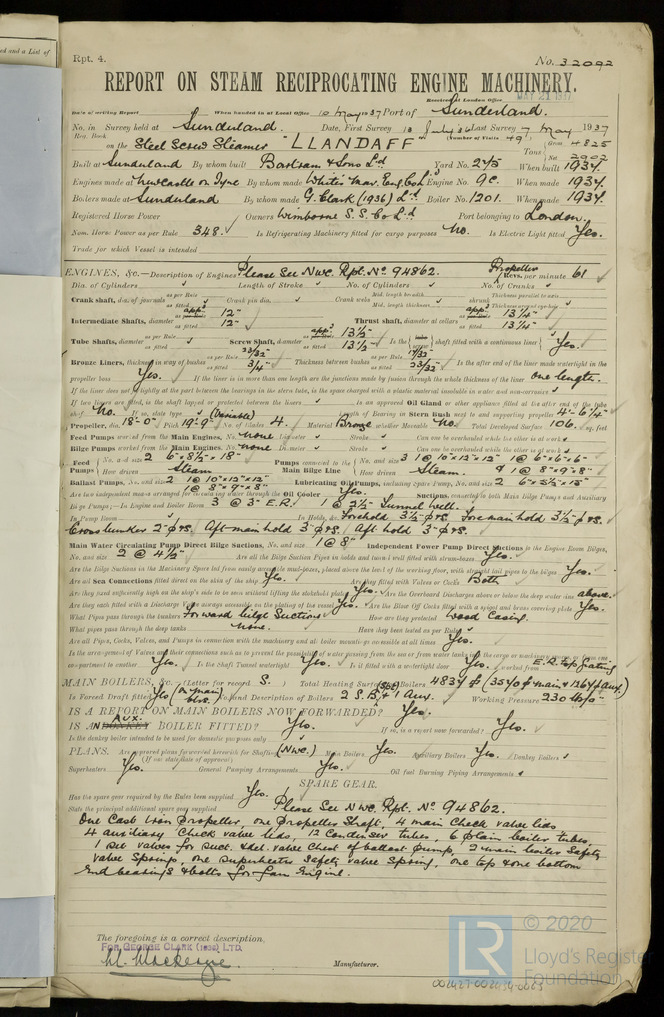 Rpt. 4.
No. 32092
REPORT ON STEAM RECIPROCATING ENGINE MACHINERY.
Received at London Office
MAY 21 1937
Date of writing Report When handed in at Local Office 10 May 1937 Port of Sunderland.
No. in Survey held at Sunderland. Date, First Survey 13 July '36 Last Survey 7 May 1937
Reg. Book. (Number of Visits 49)
on the Steel Screw Steamer "LLANDAFF" Tons Gross 4825
Net 2902
Built at Sunderland By whom built Bartram & Sons Ld Yard No. 275 When built 1937.
Engines made at Newcastle on Tyne By whom made White's Mar. Eng. Co Ld Engine No. 9C. When made 1937.
Boilers made at Sunderland By whom made G. Clark (1936) Ld. Boiler No. 1201. When made 1937.
Registered Horse Power Owners Wimborne S.S. Co Ld Port belonging to London.
Nom. Horse Power as per Rule 348. Is Refrigerating Machinery fitted for cargo purposes No. Is Electric Light fitted Yes.
Trade for which Vessel is intended
ENGINES, &c.—Description of Engines Please See Nwc. Rpt. No 94862. Propeller Revs. per minute 61
Dia. of Cylinders Length of Stroke No. of Cylinders No. of Cranks
Crank shaft, dia. of journals as per Rule as fitted Crank pin dia. Crank webs Mid. length breadth Mid. length thickness shrunk Thickness parallel to axis Thickness around eye-hole
Intermediate Shafts, diameter appd. 12" as fitted 12" Thrust shaft, diameter at collars appd. 13 1/4" as fitted 13 1/4"
Tube Shafts, diameter as per Rule as fitted Screw Shaft, diameter appd. 13 1/2" as fitted 13 1/2" Is the screw shaft fitted with a continuous liner Yes.
Bronze Liners, thickness in way of bushes as per Rule 23/32" as fitted 3/4" Thickness between bushes as per Rule 17/32" as fitted 23/32" Is the after end of the liner made watertight in the
propeller boss Yes. If the liner is in more than one length are the junctions made by fusion through the whole thickness of the liner one length.
If the liner does not fit tightly at the part between the bearings in the stern tube, is the space charged with a plastic material insoluble in water and non-corrosive
If two liners are fitted, is the shaft lapped or protected between the liners Is an approved Oil Gland or other appliance fitted at the after end of the tube
shaft No. If so, state type Length of Bearing in Stern Bush next to and supporting propeller 4'-6 1/4"
Propeller, dia. 18'-0" Pitch 19'-9" (Variable) No. of blades 4. Material Bronze whether Moveable No. Total Developed Surface 106. sq. feet
Feed Pumps worked from the Main Engines, No. None Diameter Stroke Can one be overhauled while the other is at work
Bilge Pumps worked from the Main Engines, No. None Diameter Stroke Can one be overhauled while the other is at work
Feed Pumps No. and size 2 6" x 8 1/2" x 18" How driven Steam Pumps connected to the Main Bilge Line No. and size 3 1 @ 10" x 12" x 12" 1 @ 6" x 6" x 6" & 1 @ 8" x 9" x 8" How driven Steam.
Ballast Pumps, No. and size 2 1 @ 10" x 12" x 12" 1 @ 8" x 9" x 8" Lubricating Oil Pumps, including Spare Pump, No. and size 2 6" x 5 1/2" x 15"
Are two independent means arranged for circulating water through the Oil Cooler Yes. Suctions, connected to both Main Bilge Pumps and Auxiliary
Bilge Pumps;—In Engine and Boiler Room 3 @ 3" E.R. 1 @ 2 1/2" Tunnel Well.
In Pump Room In Holds, &c. Forehold 3 1/2" P&S. Foremain hold 3 1/2" P&S.
Cross bunker 2" P&S. Aft main hold 3" P&S. Aft. hold 3" P&S.
Main Water Circulating Pump Direct Bilge Suctions, No. and size 1 @ 8" Independent Power Pump Direct Suctions to the Engine Room Bilges,
No. and size 2 @ 4 1/2" Are all the Bilge Suction Pipes in holds and tunnel well fitted with strum-boxes Yes.
Are the Bilge Suctions in the Machinery Space led from easily accessible mud-boxes, placed above the level of the working floor, with straight tail pipes to the bilges Yes.
Are all Sea Connections fitted direct on the skin of the ship Yes. Are they fitted with Valves or Cocks Both
Are they fixed sufficiently high on the ship's side to be seen without lifting the stokehold plates Yes. Are the Overboard Discharges above or below the deep water line above.
Are they each fitted with a Discharge Valve always accessible on the plating of the vessel Yes. Are the Blow Off Cocks fitted with a spigot and brass covering plate Yes.
What Pipes pass through the bunkers Forward bilge Suctions. How are they protected Wood Casing.
What pipes pass through the deep tanks None. Have they been tested as per Rule
Are all Pipes, Cocks, Valves, and Pumps in connection with the machinery and all boiler mountings accessible at all times Yes.
Is the arrangement of Valves and their connections such as to prevent the possibility of water passing from the sea or from water tanks into the cargo or machinery spaces, or from one
compartment to another Yes. Is the Shaft Tunnel watertight Yes. Is it fitted with a watertight door Yes. worked from E.R. top grating
MAIN BOILERS, &c.—(Letter for record S.) Total Heating Surface of Boilers 4834 (3570 main & 1264 Aux.)
Is Forced Draft fitted Yes (on main blrs.) No. and Description of Boilers 2 S.B. & 1 Aux. Working Pressure 230 lbs
IS A REPORT ON MAIN BOILERS NOW FORWARDED? Yes.
IS AN AUX. BOILER FITTED? Yes. If so, is a report now forwarded? Yes.
Is the donkey boiler intended to be used for domestic purposes only
PLANS. Are approved plans forwarded herewith for Shafting (Nwc.) Main Boilers Yes. Auxiliary Boilers Yes. Donkey Boilers
(If not state date of approval)
Superheaters Yes. General Pumping Arrangements Yes. Oil fuel Burning Piping Arrangements
SPARE GEAR.
Has the spare gear required by the Rules been supplied Yes.
State the principal additional spare gear supplied Please See Nwc. Rpt. No 94862.
One Cast Iron Propeller, one Propeller Shaft, 4 main check valve lids
4 auxiliary check valve lids, 12 Condenser tubes, 6 plain boiler tubes,
1 set valves for suct. & del. valve chest of ballast pump, 2 main boiler Safety
valve Springs, one superheater safety valve Spring, one top & one bottom
end bearings & bolts for fan Engine.
The foregoing is a correct description,
FOR GEORGE CLARK (1936) LTD.
M. Mackenzie
Manufacturer.
© 2020
LR
Lloyd's Register
Foundation